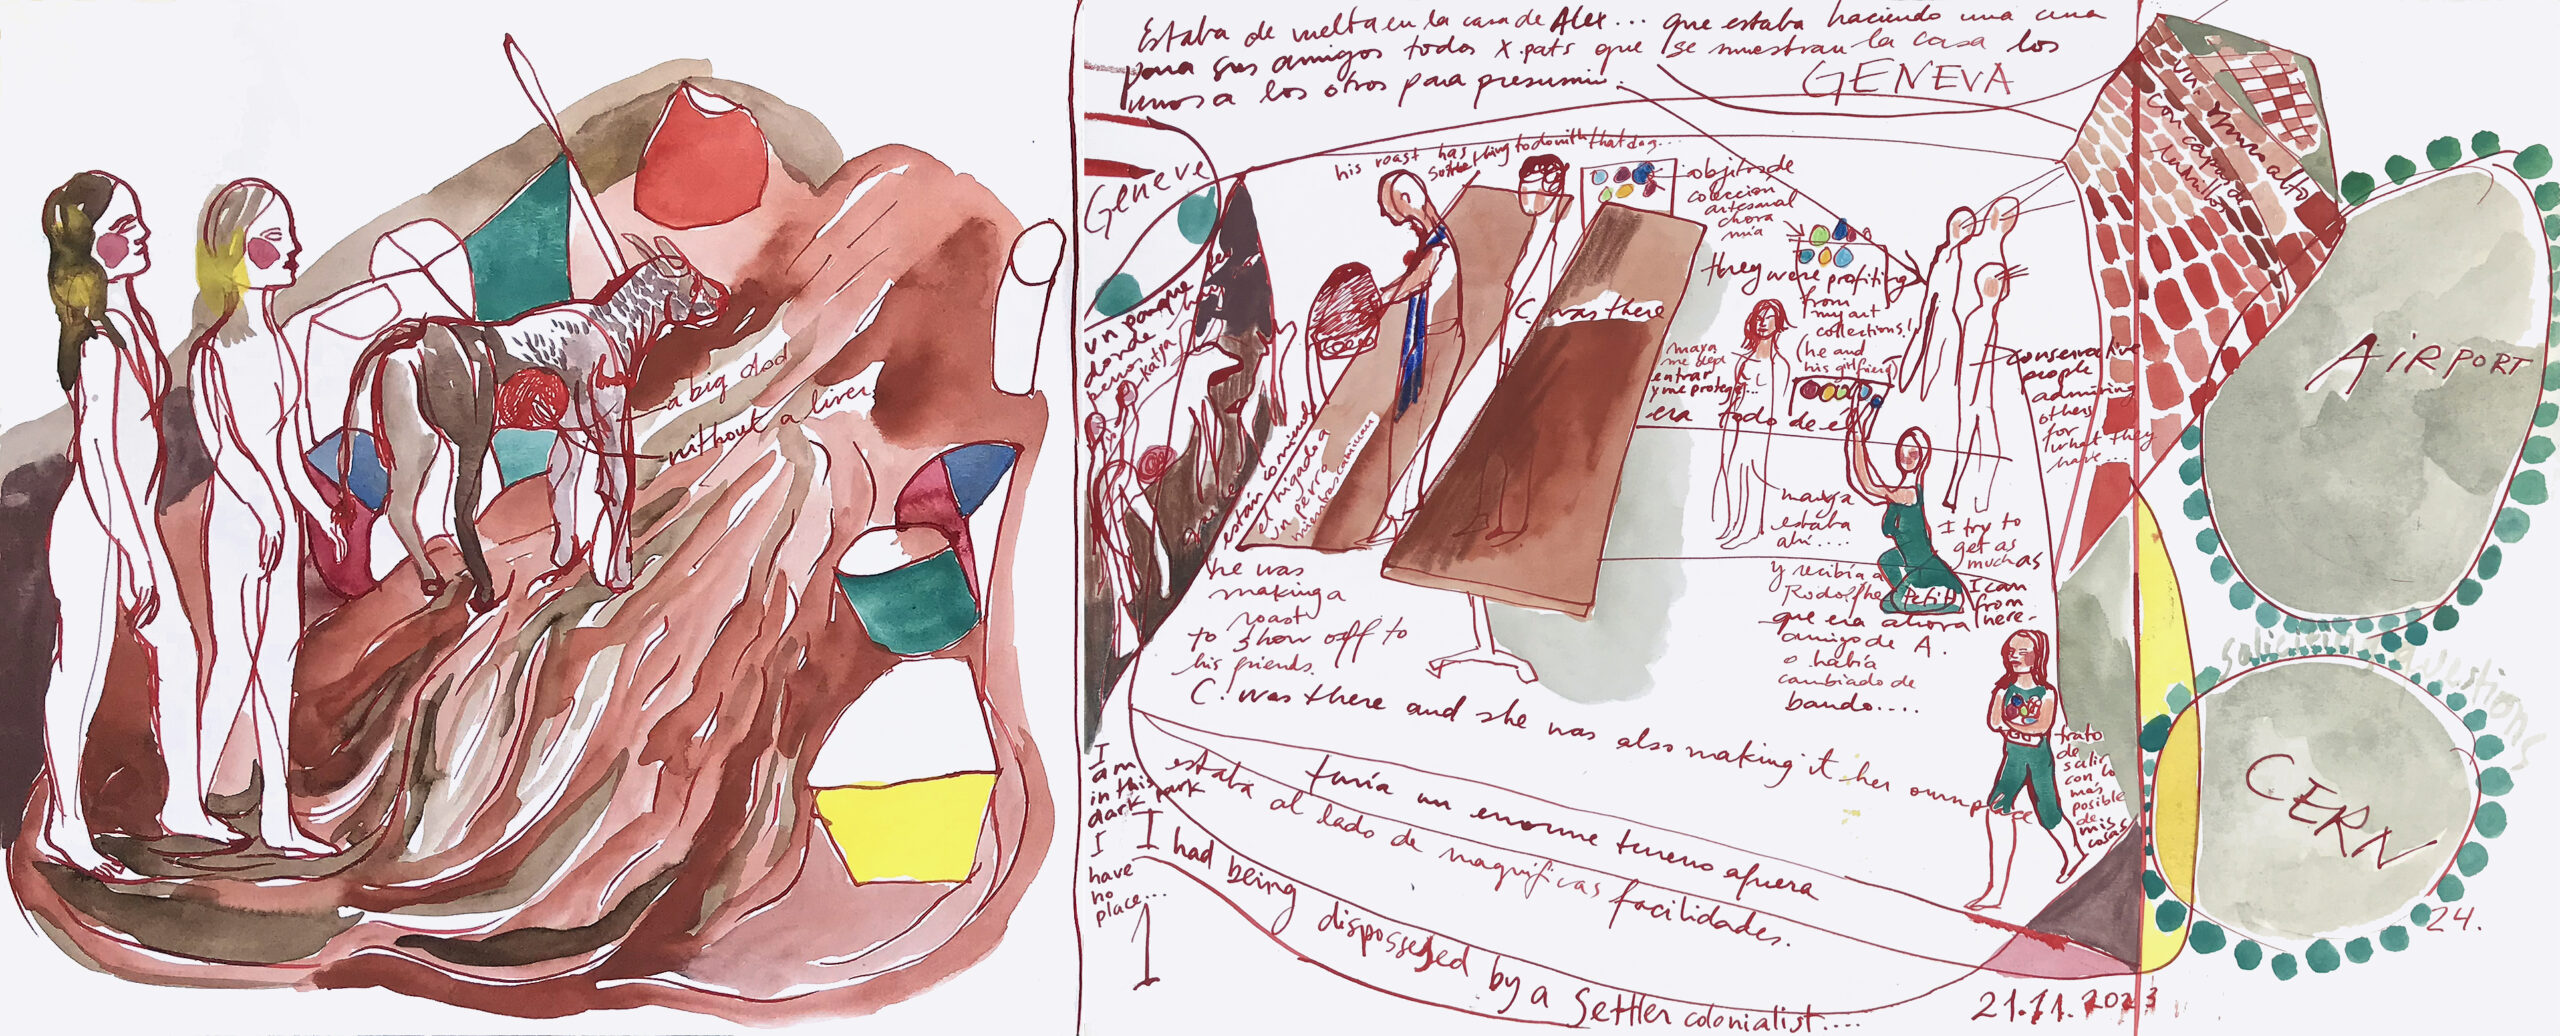 a big dog
without a liver
Estaba de vuelta en la casa de Alex... que estaba haciendo una cena
para sus amigos todos x.pats que se muestran la casa los
unos a los otros para presumir.
GENEVA
Geneve
his roast has something to do with that dog...
objitos de
coleccion
artesanal
ahora
mia
they were profiting
from
my art
collections!
(he and
his girlfriend)
C. was there
maya
me deja
entrar
y me protege...
era todo de él
conservative
people
admiring
others
for
what they
have...
un parque
donde hay
perros
Katja
están comiendo
el higado a
un perro
mientras caminan
he was
making a
roast
to show off to
his friends.
C. was there and she was also making it her own place
maya
estaba
ahí....
y recibía a
Rodolphe Petit
que era ahora
amigo de A.
o había
cambiado de
bando....
I try to
get as
much as
I can
from
here.
trato
de
salir
con lo
mas
posible
de
mis
cosas
tenía un enorme terreno afuera
estaba al lado de magníficas facilidades.
I
am
in this
dark park
I
have
no
place...
I had being dispossesed by a settler colonialist....
un muro alto
con capas de
ladrillos
AIRPORT
CERN
questions
24.
21.11.2023